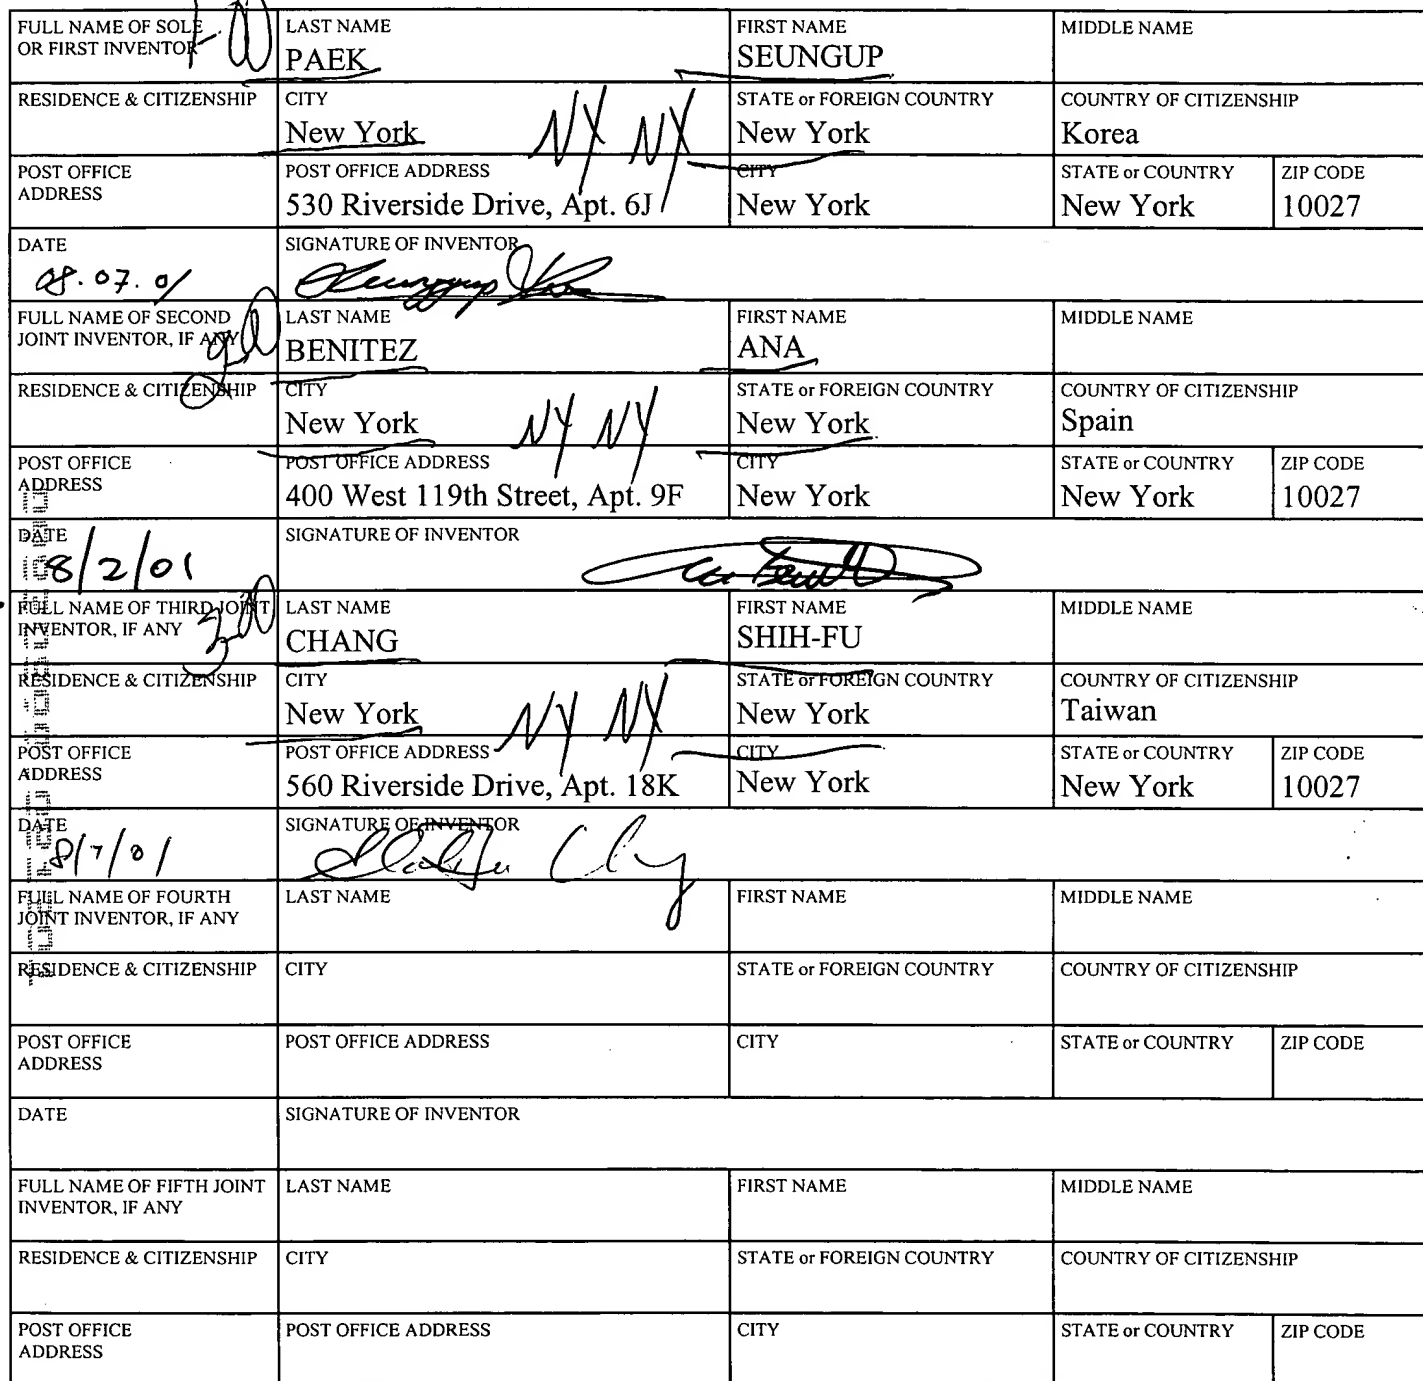 FULL NAME OF SOLE OR FIRST INVENTOR
LAST NAME
PAEK
FIRST NAME
SEUNGUP
MIDDLE NAME
RESIDENCE & CITIZENSHIP
CITY
New York
NY NY
STATE or FOREIGN COUNTRY
New York
COUNTRY OF CITIZENSHIP
Korea
POST OFFICE ADDRESS
POST OFFICE ADDRESS
530 Riverside Drive, Apt. 6J
CITY
New York
STATE or COUNTRY
New York
ZIP CODE
10027
DATE
08.07.01
SIGNATURE OF INVENTOR
FULL NAME OF SECOND JOINT INVENTOR, IF ANY
LAST NAME
BENITEZ
FIRST NAME
ANA
MIDDLE NAME
RESIDENCE & CITIZENSHIP
CITY
New York
NY NY
STATE or FOREIGN COUNTRY
New York
COUNTRY OF CITIZENSHIP
Spain
POST OFFICE ADDRESS
POST OFFICE ADDRESS
400 West 119th Street, Apt. 9F
CITY
New York
STATE or COUNTRY
New York
ZIP CODE
10027
DATE
8/2/01
SIGNATURE OF INVENTOR
FULL NAME OF THIRD JOINT INVENTOR, IF ANY
LAST NAME
CHANG
FIRST NAME
SHIH-FU
MIDDLE NAME
RESIDENCE & CITIZENSHIP
CITY
New York
NY NY
STATE or FOREIGN COUNTRY
New York
COUNTRY OF CITIZENSHIP
Taiwan
POST OFFICE ADDRESS
POST OFFICE ADDRESS
560 Riverside Drive, Apt. 18K
CITY
New York
STATE or COUNTRY
New York
ZIP CODE
10027
DATE
8/7/01
SIGNATURE OF INVENTOR
FULL NAME OF FOURTH JOINT INVENTOR, IF ANY
LAST NAME
FIRST NAME
MIDDLE NAME
RESIDENCE & CITIZENSHIP
CITY
STATE or FOREIGN COUNTRY
COUNTRY OF CITIZENSHIP
POST OFFICE ADDRESS
POST OFFICE ADDRESS
CITY
STATE or COUNTRY
ZIP CODE
DATE
SIGNATURE OF INVENTOR
FULL NAME OF FIFTH JOINT INVENTOR, IF ANY
LAST NAME
FIRST NAME
MIDDLE NAME
RESIDENCE & CITIZENSHIP
CITY
STATE or FOREIGN COUNTRY
COUNTRY OF CITIZENSHIP
POST OFFICE ADDRESS
POST OFFICE ADDRESS
CITY
STATE or COUNTRY
ZIP CODE